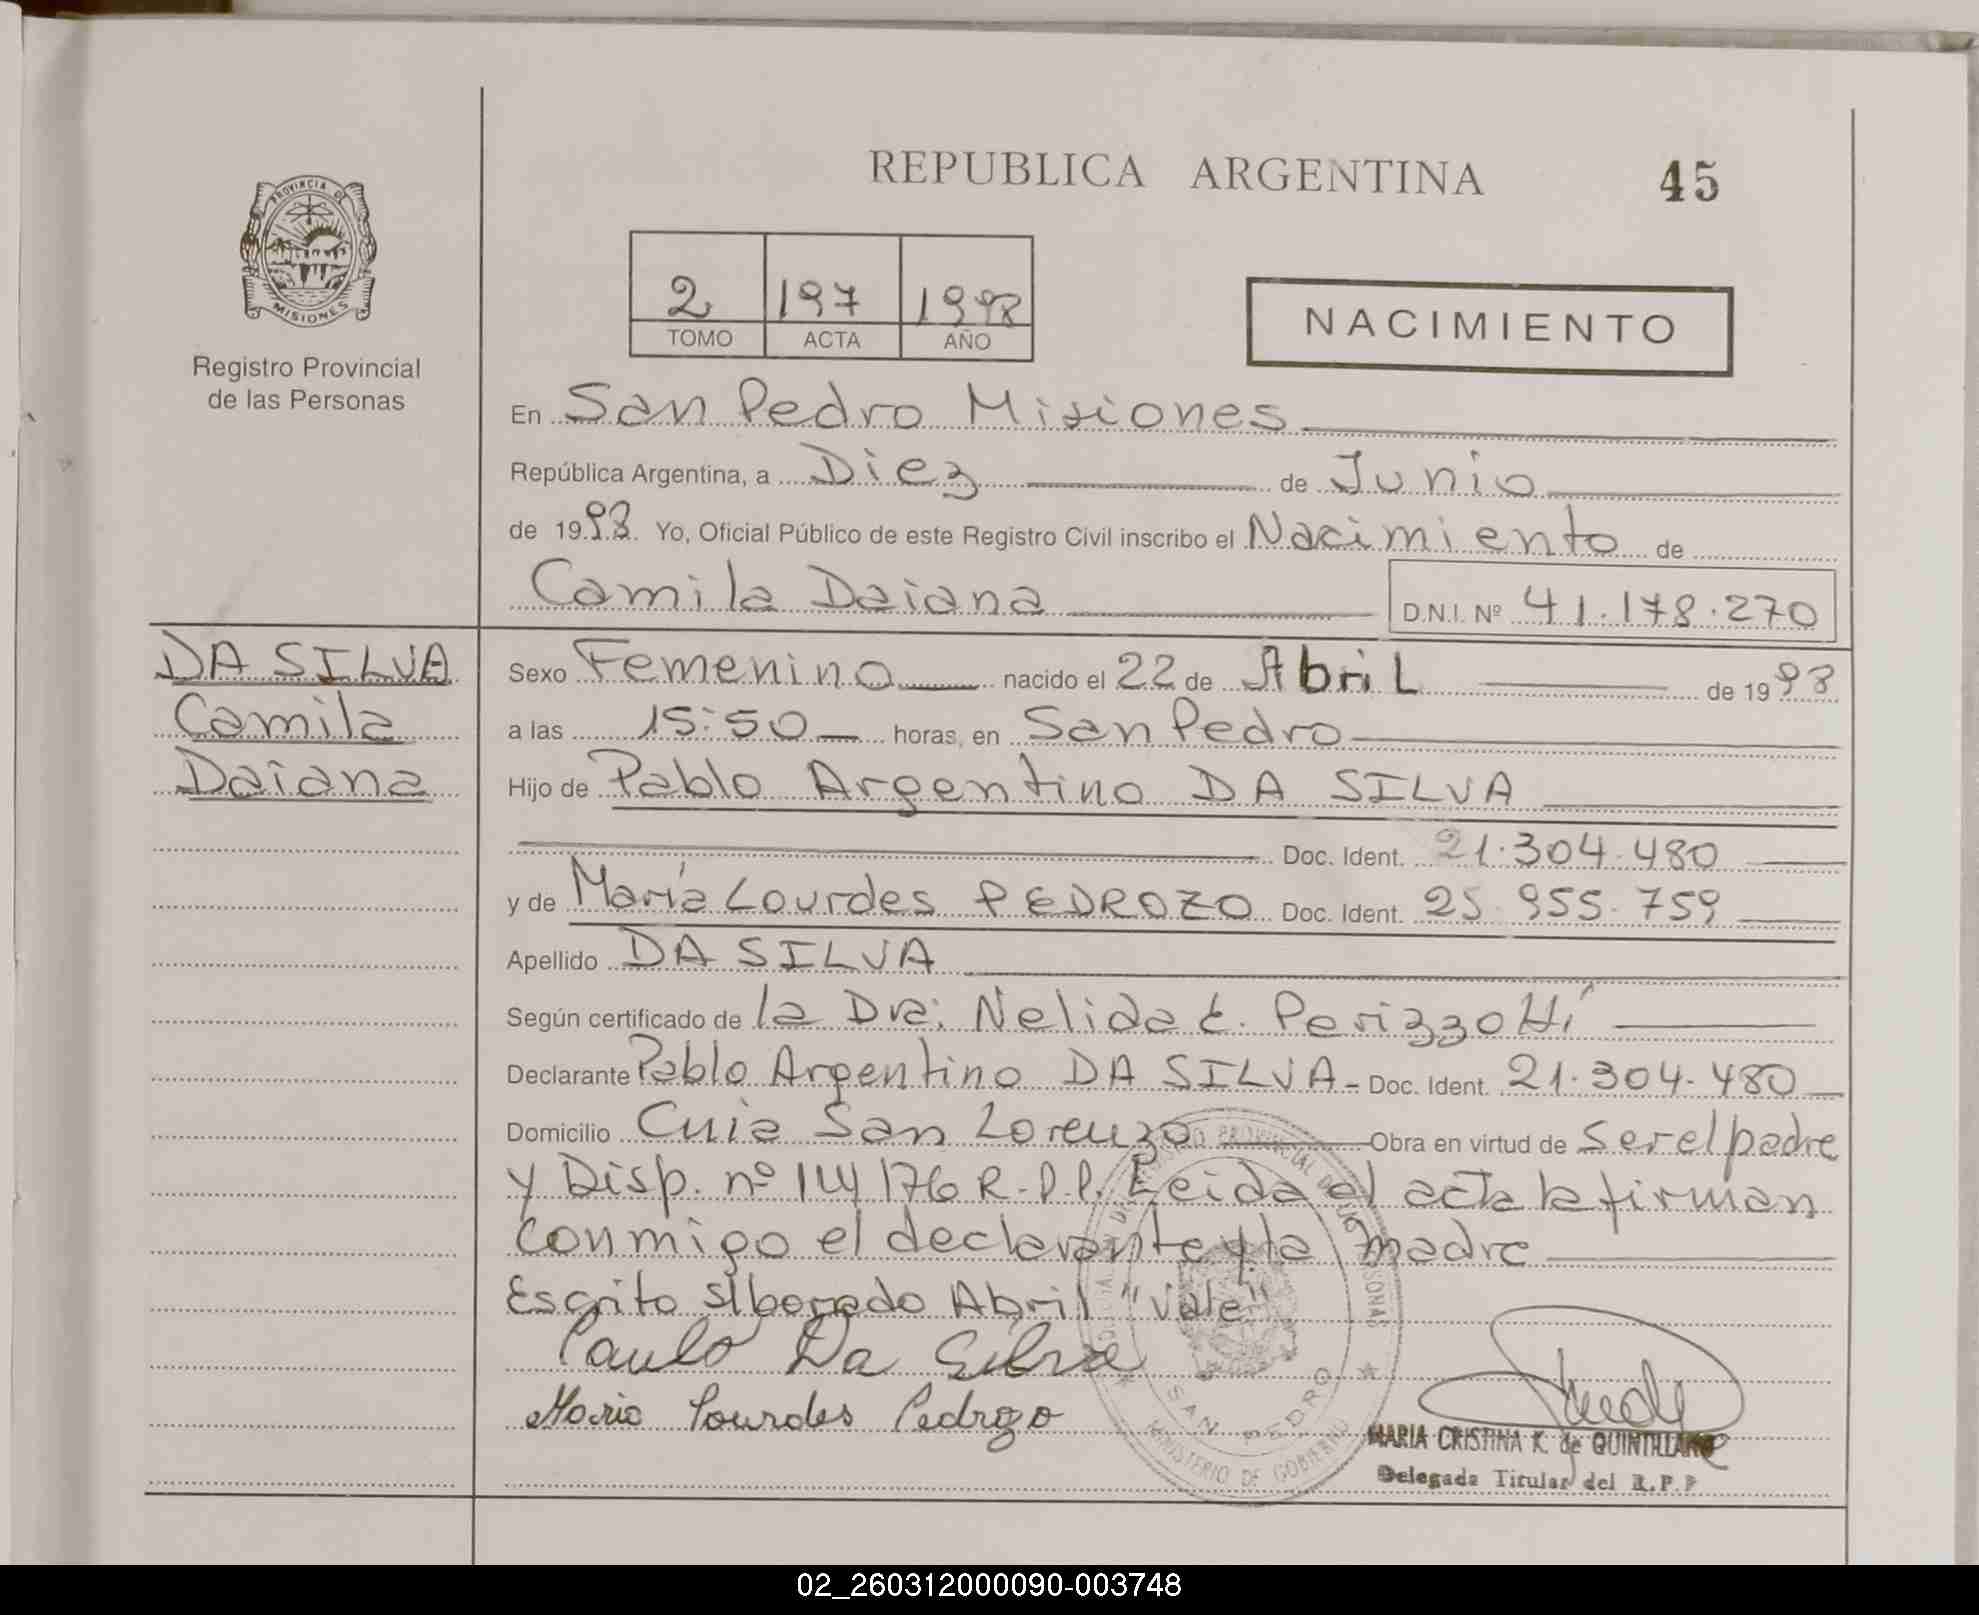 REPUBLICA ARGENTINA
45
PROVINCIA DE
MISIONES
Registro Provincial
de las Personas
2 197 1998
TOMO ACTA AÑO
NACIMIENTO
En San Pedro Misiones
República Argentina, a Diez de Junio
de 1998. Yo, Oficial Público de este Registro Civil inscribo el Nacimiento de
Camila Daiana D.N.I. Nº 41.178.270
DA SILVA
Camila
Daiana
Sexo Femenino nacido el 22 de Abril de 1998
a las 15:50 horas, en San Pedro
Hijo de Pablo Argentino DA SILVA
Doc. Ident. 21.304.480
y de María Lourdes PEDROZO Doc. Ident. 25.955.759
Apellido DA SILVA
Según certificado de la Dra: Nelida E. Perizzotti
Declarante Pablo Argentino DA SILVA - Doc. Ident. 21.304.480
Domicilio Cuia San Lorenzo Obra en virtud de ser el padre
y Disp. nº 14/76 R.P.P. Leida el acta la firman
conmigo el declarante y la madre
Escrito s/borrado Abril "vale"
Paulo Da Silva
Maria Lourdes Pedrozo
SAN PEDRO
MINISTERIO DE GOBIERNO
MARIA CRISTINA K. de QUINTILLAN
Delegada Titular del R.P.P
02_260312000090-003748